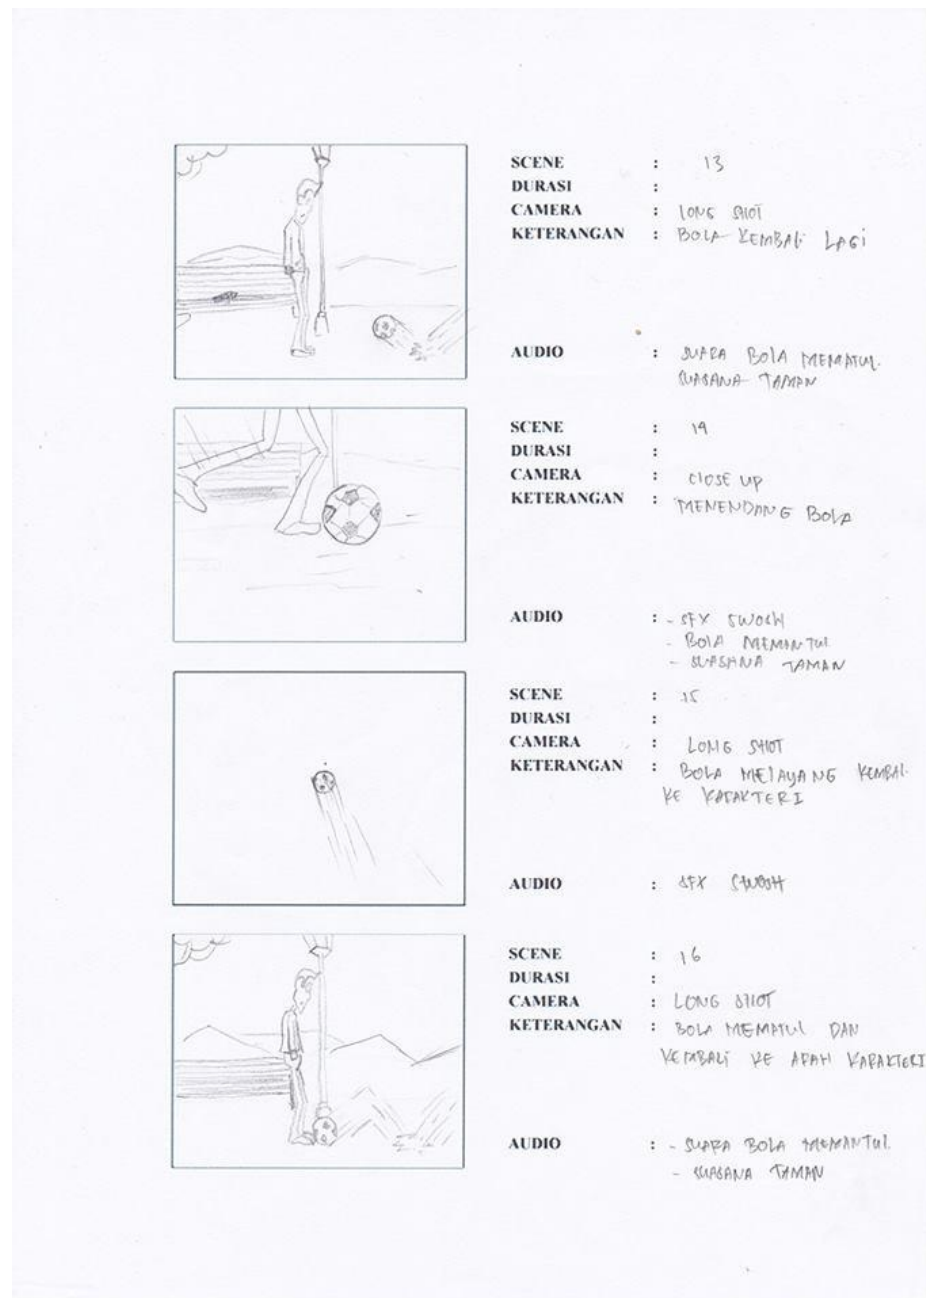 SCENE : 13
DURASI :
CAMERA : LONG SHOT
KETERANGAN : BOLA KEMBALI LAGI
AUDIO : SUARA BOLA MEMATUL.
SUASANA TAMAN
SCENE : 14
DURASI :
CAMERA : CLOSE UP
KETERANGAN : MENENDANG BOLA
AUDIO : - SFX SWOSH
- BOLA MEMANTUL
- SUASANA TAMAN
SCENE : 15
DURASI :
CAMERA : LONG SHOT
KETERANGAN : BOLA MELAYANG KEMBALI
KE KARAKTER I
AUDIO : SFX SWOSH
SCENE : 16
DURASI :
CAMERA : LONG SHOT
KETERANGAN : BOLA MEMATUL DAN
KEMBALI KE ARAH KARAKTER I
AUDIO : - SUARA BOLA MEMANTUL
- SUASANA TAMAN